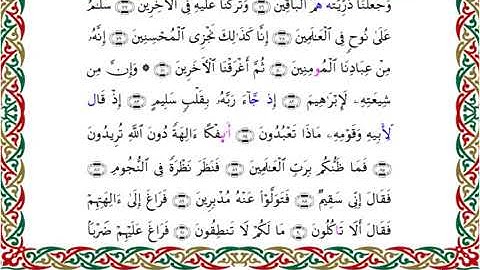 وَجَعَلْنَا ذُرِّيَّتَه هُّمُ ٱلْبَاقِينَ ۝ وَتَرَكْنَا عَلَيْهِ فِى ٱلْأَخِرِينَ ۝ سَلَٰمٌ
عَلَىٰ نُوحٍ فِى ٱلْعَٰلَمِينَ ۝ إِنَّا كَذَٰلِكَ نَجْزِى ٱلْمُحْسِنِينَ ۝ إِنَّهُۥ
مِنْ عِبَادِنَا ٱلْمُومِنِينَ ۝ ثُمَّ أَغْرَقْنَا ٱلْأَخَرِينَ ۝ ۞ وَإِنَّ مِن
شِيعَتِهِۦ لَإِبْرَٰهِيمَ ۝ إِذ جَّآءَ رَبَّهُۥ بِقَلْبٍ سَلِيمٍ ۝ إِذْ قَال
لِّأَبِيهِ وَقَوْمِهِۦ مَاذَا تَعْبُدُونَ ۝ أَىِٕفْكًا ءَالِهَةً دُونَ ٱللَّهِ تُرِيدُونَ
۝ فَمَا ظَنُّكُم بِرَبِّ ٱلْعَٰلَمِينَ ۝ فَنَظَرَ نَظْرَةً فِى ٱلنُّجُومِ ۝
فَقَالَ إِنِّى سَقِيمٌ ۝ فَتَوَلَّوْا۟ عَنْهُ مُدْبِرِينَ ۝ فَرَاغَ إِلَىٰٓ ءَالِهَتِهِمْ
فَقَالَ أَلَا تَاكُلُونَ ۝ مَا لَكُمْ لَا تَنطِقُونَ ۝ فَرَاغَ عَلَيْهِمْ ضَرْبًۢا